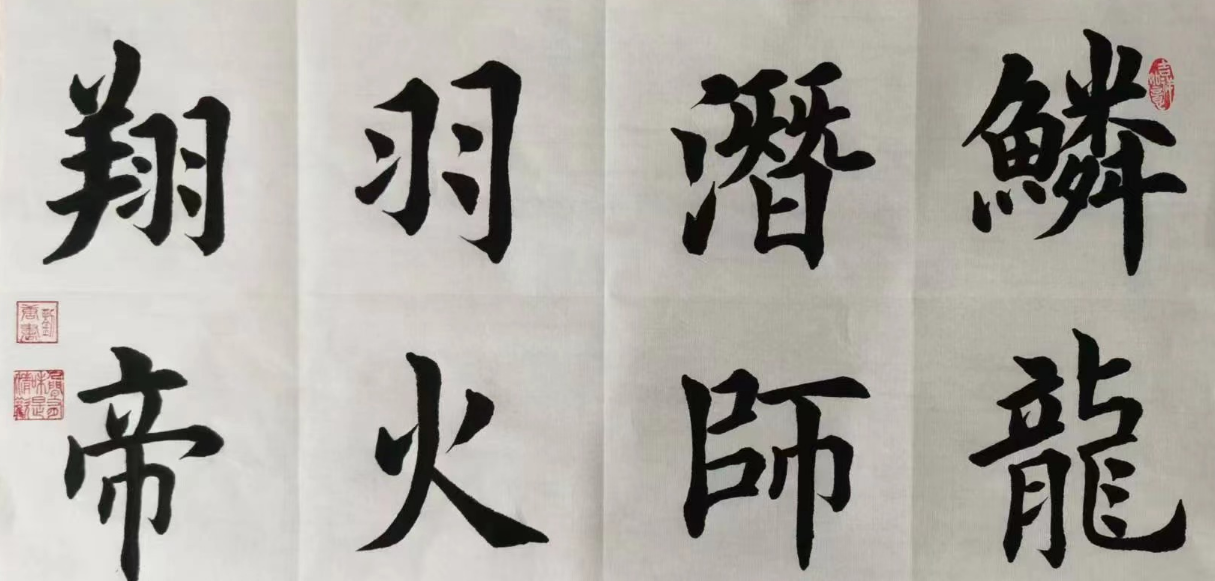 鱗龍
潛師
羽火
翔帝